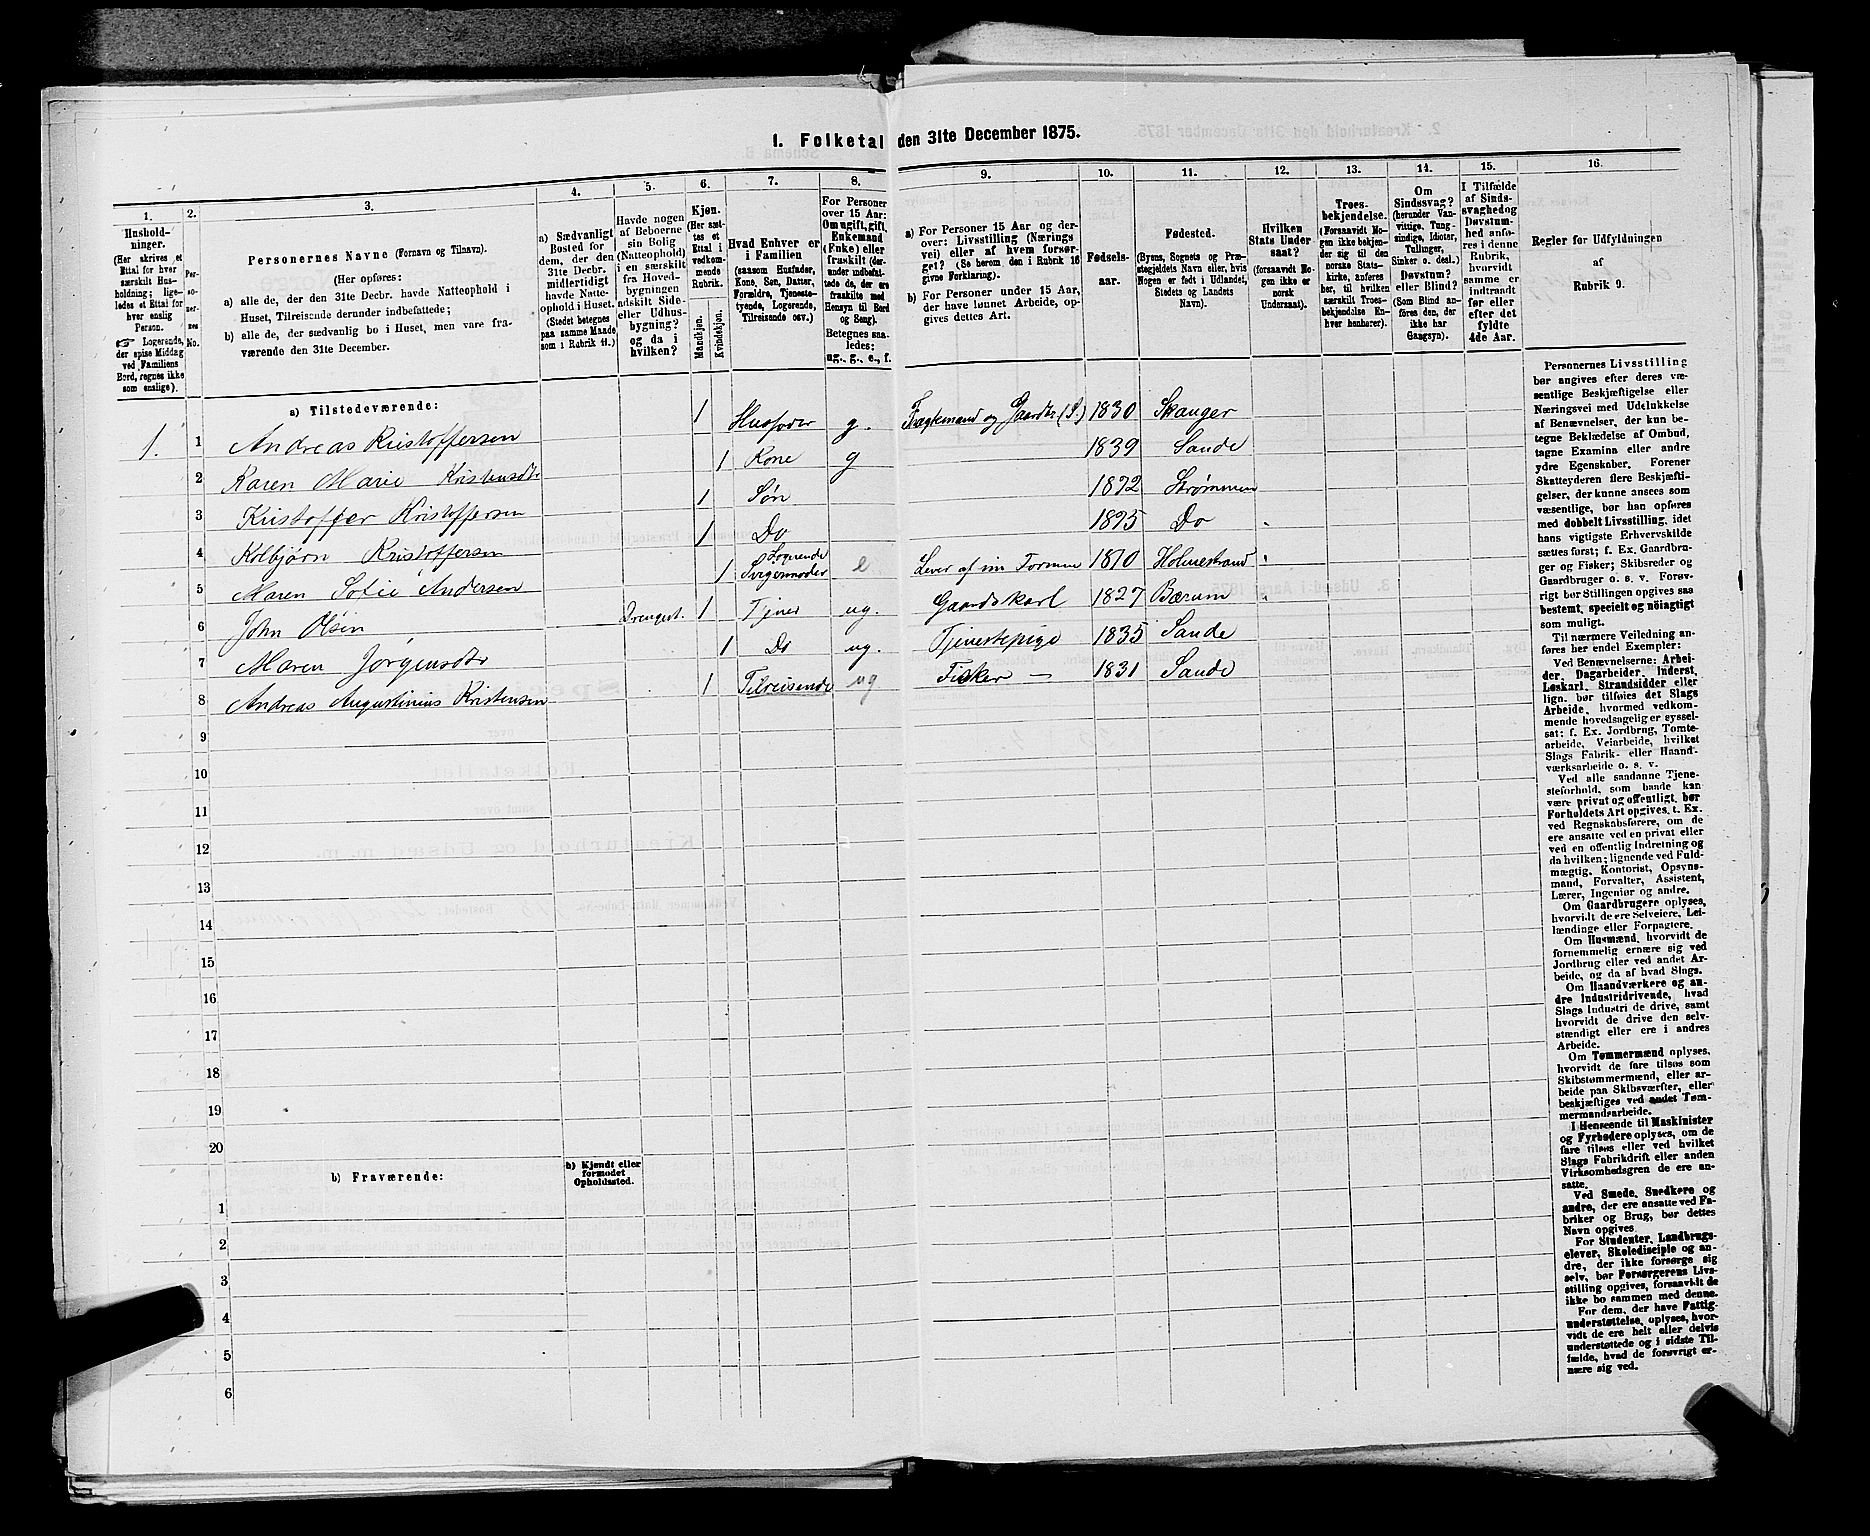 1. Folketal den 31te December 1875.
1.
Husholdninger.
(Her skrives et Ettal for hver særskilt Husholdning; ligeledes et Ettal for hver enslig Person.
☞ Logerende, der spise Middag ved Familiens Bord, regnes ikke som enslige).
2.
Personernes No.
3.
Personernes Navne (Fornavn og Tilnavn).
(Her opføres:
a) alle de, der den 31te Decbr. havde Natteophold i Huset, Tilreisende derunder indbefattede;
b) alle de, der sædvanlig bo i Huset, men vare fraværende den 31te December.
4.
a) Sædvanligt Bosted for dem, der den 31te Decbr. midlertidigt havde Natteophold i Huset.
(Stedet betegnes paa samme Maade som i Rubrik 11.)
5.
Havde nogen af Beboerne sin Bolig (Natteophold) i en særskilt fra Hovedbygningen adskilt Side- eller Udhusbygning? og da i hvilken?
6.
Kjøn.
(Her sættes et Ettal i vedkommende Rubrik.
Mandkjøn.
Kvindekjøn.
7.
Hvad Enhver er i Familien
(saasom Husfader, Kone, Søn, Datter, Forældre, Tjenestetyende, Logerende, Tilreisende osv.)
8.
For Personer over 15 Aar: Om ugift, gift, Enkemand (Enke) eller fraskilt (derunder indbefattede de, der ere fraskilte med Hensyn til Bord og Seng).
Betegnes saaledes: ug., g., e., f.
9.
a) For Personer 15 Aar og derover: Livsstilling (Nærings vei) eller af hvem forsørget? (Se herom den i Rubrik 16 givne Forklaring).
b) For Personer under 15 Aar, der have lønnet Arbeide, opgives dettes Art.
10.
Fødselsaar.
11.
Fødested.
(Byens, Sognets og Præstegjeldets Navn eller, hvis Nogen er født i Udlandet, Stedets og Landets Navn).
12.
Hvilken Stats Undersaat?
(forsaavidt Nogen ikke er norsk Undersaat).
13.
Troesbekjendelse.
(Forsaavidt Nogen ikke bekjender sig til den norske Statskirke, anføres her, til hvilken særskilt Troesbekjendelse Enhver henhører).
14.
Om Sindssvag? (herunder Vanvittige, Tungsindige, Idioter, Tullinger, Sinker o. desl.) Døvstum? eller Blind?
(Som Blind anføres den, der ikke har Gangsyn).
15.
I Tilfælde af Sindssvaghed og Døvstumhed anføres i denne Rubrik, hvorvidt samme er indtraadt før eller efter det fyldte 4de Aar.
16.
Regler for Udfyldningen
af
Rubrik 9.
a) Tilstedeværende:
1. 1 Andreas Kristoffersen 1 Husfader g. Fragtemand og Gaardbr (S.) 1830 Skauger
2 Karen Marie Kristensdtr 1 Kone g 1839 Sande
3 Kristoffer Kristoffersen 1 Søn 1872 Strømmen
4 Kolbjørn Kristoffersen 1 Do 1875 Do
5 Maren Sofie Andersen 1 Logerende Svigermoder e Lever af sin Formue 1810 Holmestrand
6 John Olsen Drengest. 1 Tjener ug. Gaardskarl 1827 Bærum
7 Maren Jørgensdtr 1 Do ug. Tjenestepige 1835 Sande
8 Andreas Augustinius Kristensen 1 Tilreisende ug Fisker — 1831 Sande
9
10
11
12
13
14
15
16
17
18
19
20
b) Fraværende:
b) Kjendt eller formodet Opholdssted.
1
2
3
4
5
6
Personernes Livsstilling bør angives efter deres væsentlige Beskjæftigelse eller Næringsvei med Udelukkelse af Benævnelser, der kun betegne Beklædelse af Ombud, tagne Examina eller andre ydre Egenskaber. Forener Skatteyderen flere Beskjæftigelser, der kunne ansees som væsentlige, bør han opføres med dobbelt Livsstilling, idet hans vigtigste Erhvervskilde sættes først; f. Ex. Gaardbruger og Fisker; Skibsreder og Gaardbruger o. s. v. Forøvrigt bør Stillingen opgives saa bestemt, specielt og nøiagtigt som muligt.
Til nærmere Veiledning anføres her endel Exempler:
Ved Benævnelserne: Arbeider, Dagarbeider, Inderst, Løskarl, Strandsidder eller lign. bør tilføies det Slags Arbeide, hvormed vedkommende hovedsagelig er sysselsat: f. Ex. Jordbrug, Tomtearbeide, Veiarbeide, hvilket Slags Fabrik- eller Haandværksarbeide o. s. v.
Ved alle saadanne Tjenesteforhold, som baade kan være privat og offentligt, bør Forholdets Art opgives, t. Ex. ved Regnskabsførere, om de ere ansatte ved en privat eller ved en offentlig Indretning og da hvilken; lignende ved Fuldmægtig, Kontorist, Opsynsmand, Forvalter, Assistent, Lærer, Ingeniør og andre.
Om Gaardbrugere oplyses, hvorvidt de ere Selveiere, Leilændinge eller Forpagtere.
Om Husmænd, hvorvidt de fornemmelig ernære sig ved Jordbrug eller ved andet Arbeide, og da af hvad Slags.
Om Haandværkere og andre Industridrivende, hvad Slags Industri de drive, samt hvorvidt de drive den selvstændigt eller ere i andres Arbeide.
Om Tømmermænd oplyses, hvorvidt de fare tilsøs som Skibstømmermænd, eller arbeide paa Skibsværfter, eller beskjæftiges ved andet Tømmermandsarbeide.
I Henseende til Maskinister og Fyrbødere oplyses, om de fare tilsøs eller ved hvilket Slags Fabrikdrift eller anden Virksomhedsgren de ere ansatte.
Ved Smede, Snedkere og andre, der ere ansatte ved Fabriker og Brug, bør dettes Navn opgives.
For Studenter, Landbrugselever, Skoledisciple og andre, der ikke forsørge sig selv, bør Forsørgerens Livsstilling opgives, forsaavidt de ikke bo sammen med denne.
For dem, der have Fattigunderstøttelse, oplyses, hvorvidt de ere helt eller delvis understøttede og i sidste Tilfælde, hvad de forøvrigt ernære sig ved.